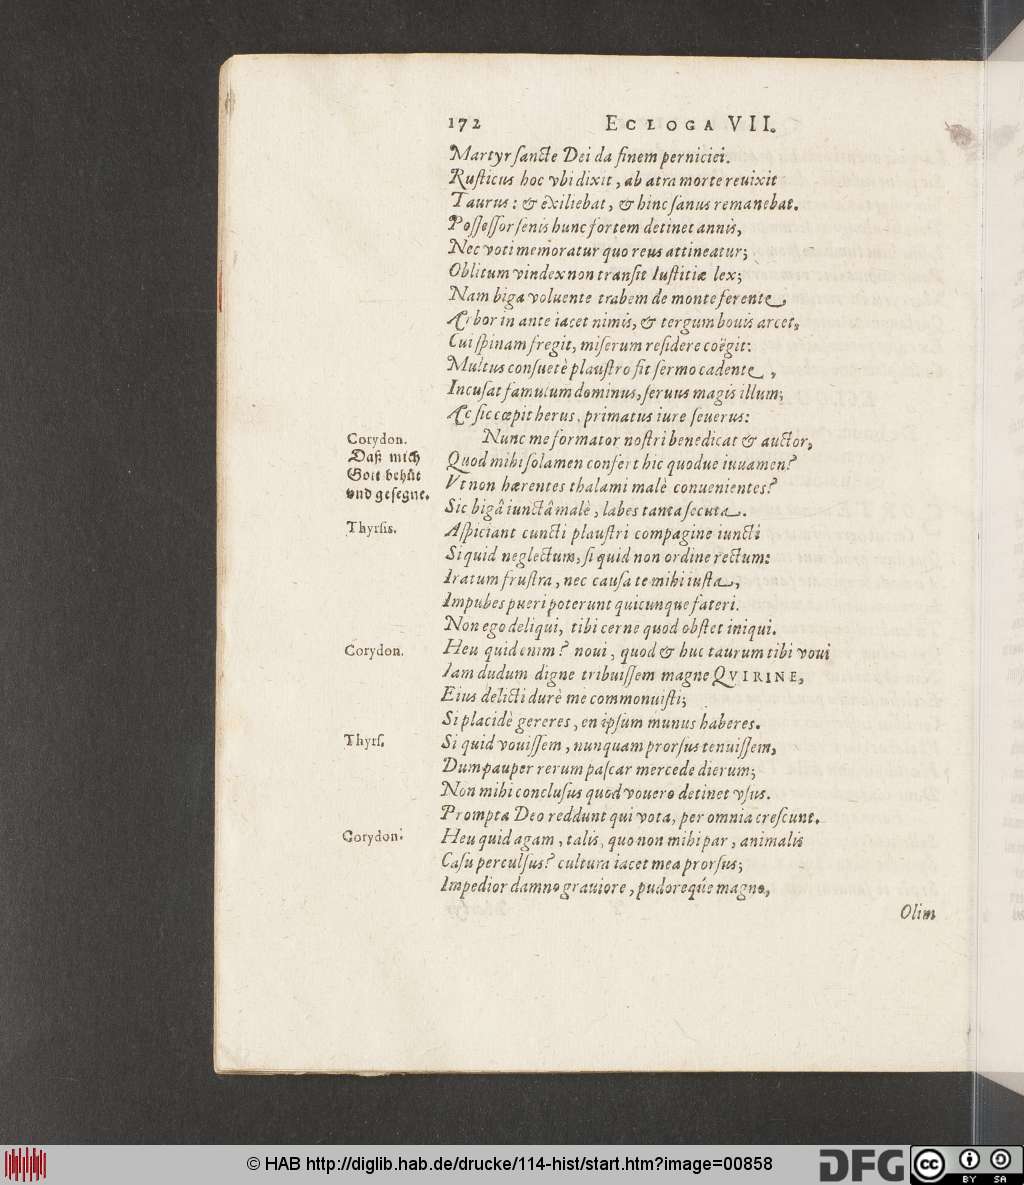 172 ECLOGA VII.
Martyr sancte Dei da finem perniciei.
Rusticus hoc vbi dixit, ab atra morte reuixit
Taurus: & exiliebat, & hinc sanus remanebat.
Possessor senis hunc fortem detinet annis,
Nec voti memoratur quo reus attineatur;
Oblitum vindex non transit Iustitiæ lex;
Nam biga voluente trabem de monte ferente,
Arbor in ante iacet nimis, & tergum bouis arcet,
Cui spinam fregit, miserum residere coëgit:
Multus consuetè plaustro fit sermo cadente,
Incusat famulum dominus, seruus magis illum;
Ac sic cœpit herus, primatus iure seuerus:
Corydon. Nunc me formator nostri benedicat & auctor,
Daß mich Gott behüt vnd gesegne. Quod mihi solamen confert hic quodue iuuamen?
Vt non hærentes thalami malè conuenientes?
Sic bigâ iunctâ malè, labes tanta secuta.
Thyrsis. Aspiciant cuncti plaustri compagine iuncti
Si quid neglectum, si quid non ordine rectum:
Iratum frustra, nec causa te mihi iusta,
Impubes pueri poterunt quicunque fateri.
Non ego deliqui, tibi cerne quod obstet iniqui.
Corydon. Heu quid enim? noui, quod & huc taurum tibi voui
Iam dudum digne tribuissem magne QVIRINE,
Eius delicti durè me commonuisti;
Si placidè gereres, en ipsum munus haberes.
Thyrs. Si quid vouissem, nunquam prorsus tenuissem,
Dum pauper rerum pascar mercede dierum;
Non mihi conclusus quod vouero detinet vsus.
Prompta Deo reddunt qui vota, per omnia crescunt.
Corydon. Heu quid agam, talis, quo non mihi par, animalis
Casu perculsus? cultura iacet mea prorsus;
Impedior damno grauiore, pudoreqúe magno,
Olim
© HAB http://diglib.hab.de/drucke/114-hist/start.htm?image=00858
DFG
cc
BY SA